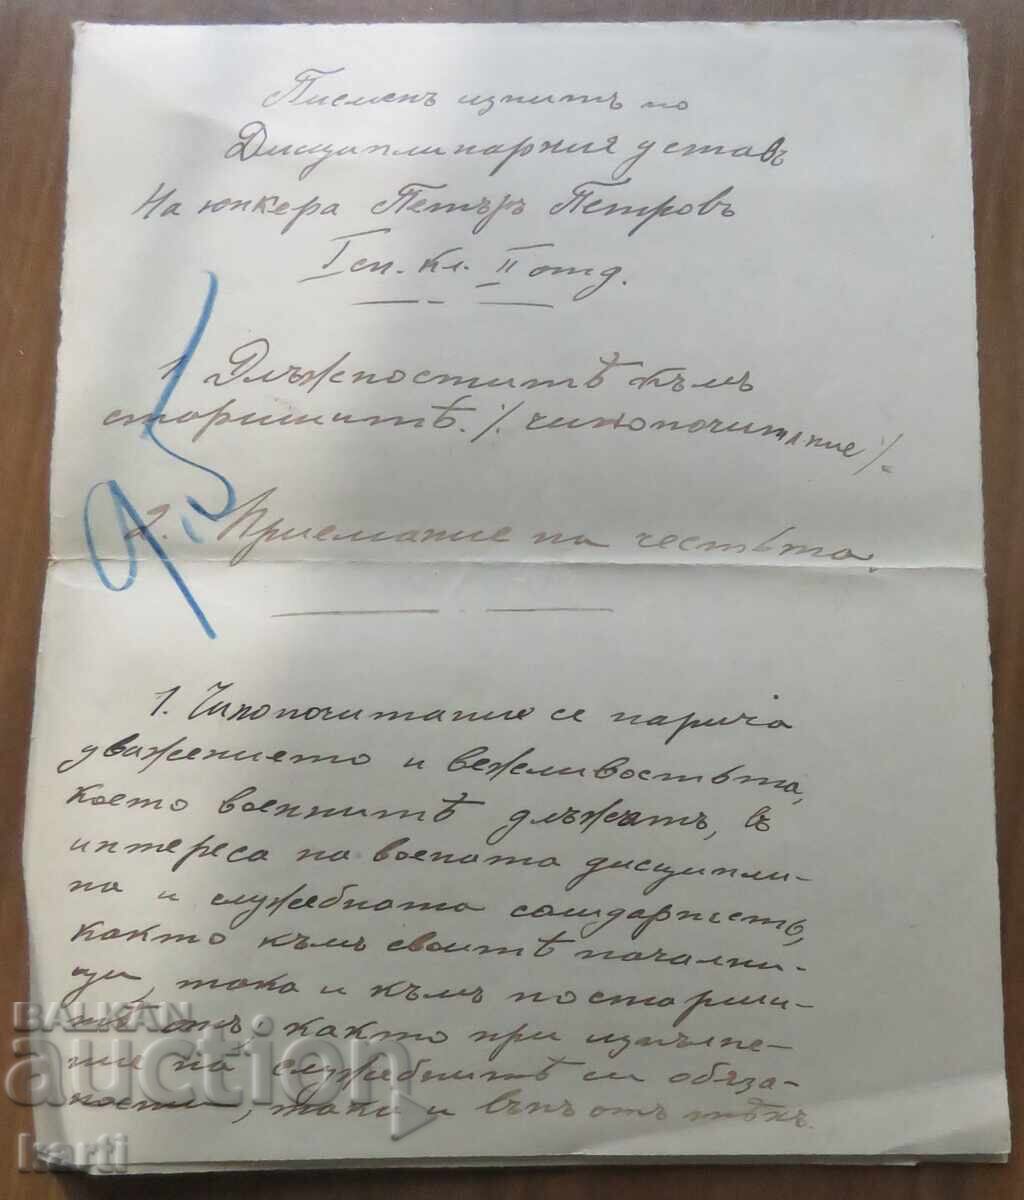 Писменъ изпитъ по
Дисциплинарния уставъ
На юнкера Петъръ Петровъ
I сп. кл. II отд.
1 Длъжноститѣ къмъ
старшитѣ. /. чинопочитание /.
9,5
2. Приемание на честьта.
1. Чинопочитание се нарича
уважението и вежливостьта,
което военнитѣ длъжатъ, въ
интереса на воената дисципли-
на и служебната солидарность,
както къмъ своитѣ начални-
ци, така и къмъ постарши-
тѣ отъ, както при изпълне-
ние на служебнитѣ си обяза-
ности, така и вънъ отъ тѣхъ.
BALKAN
auction
karti